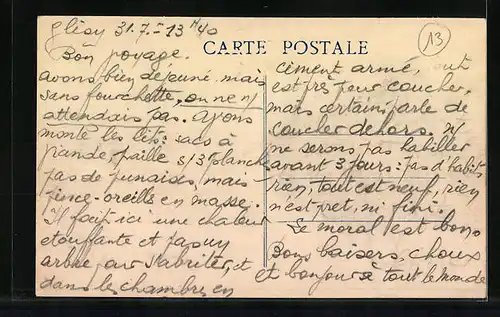 Glisy 31.7.-13 H 40
CARTE POSTALE
13
Bon voyage.
avons bien déjeuné mais
sans fourchette, on ne n/
attendais pas. Avons
monté les lits: sacs à
viande paille s/3 planches
pas de punaises, mais
pince-oreilles en masse.
Il fait ici une chaleur
étouffante et pas un
arbre pour s'abriter, et
dans les chambres en
ciment armé, tout
est prêt pour coucher,
mais certains parle de
coucher dehors. n/
ne serons pas habiller
avant 3 jours: pas d'habits
rien, tout est neuf, rien
n'est prêt, ni fini.
Le moral est bon.
Bons baisers, choux
et bonjours à tout le monde